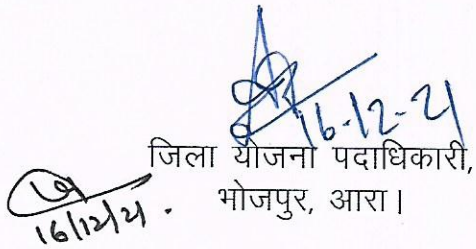 16-12-21
जिला योजना पदाधिकारी,
भोजपुर, आरा।
16/12/21.